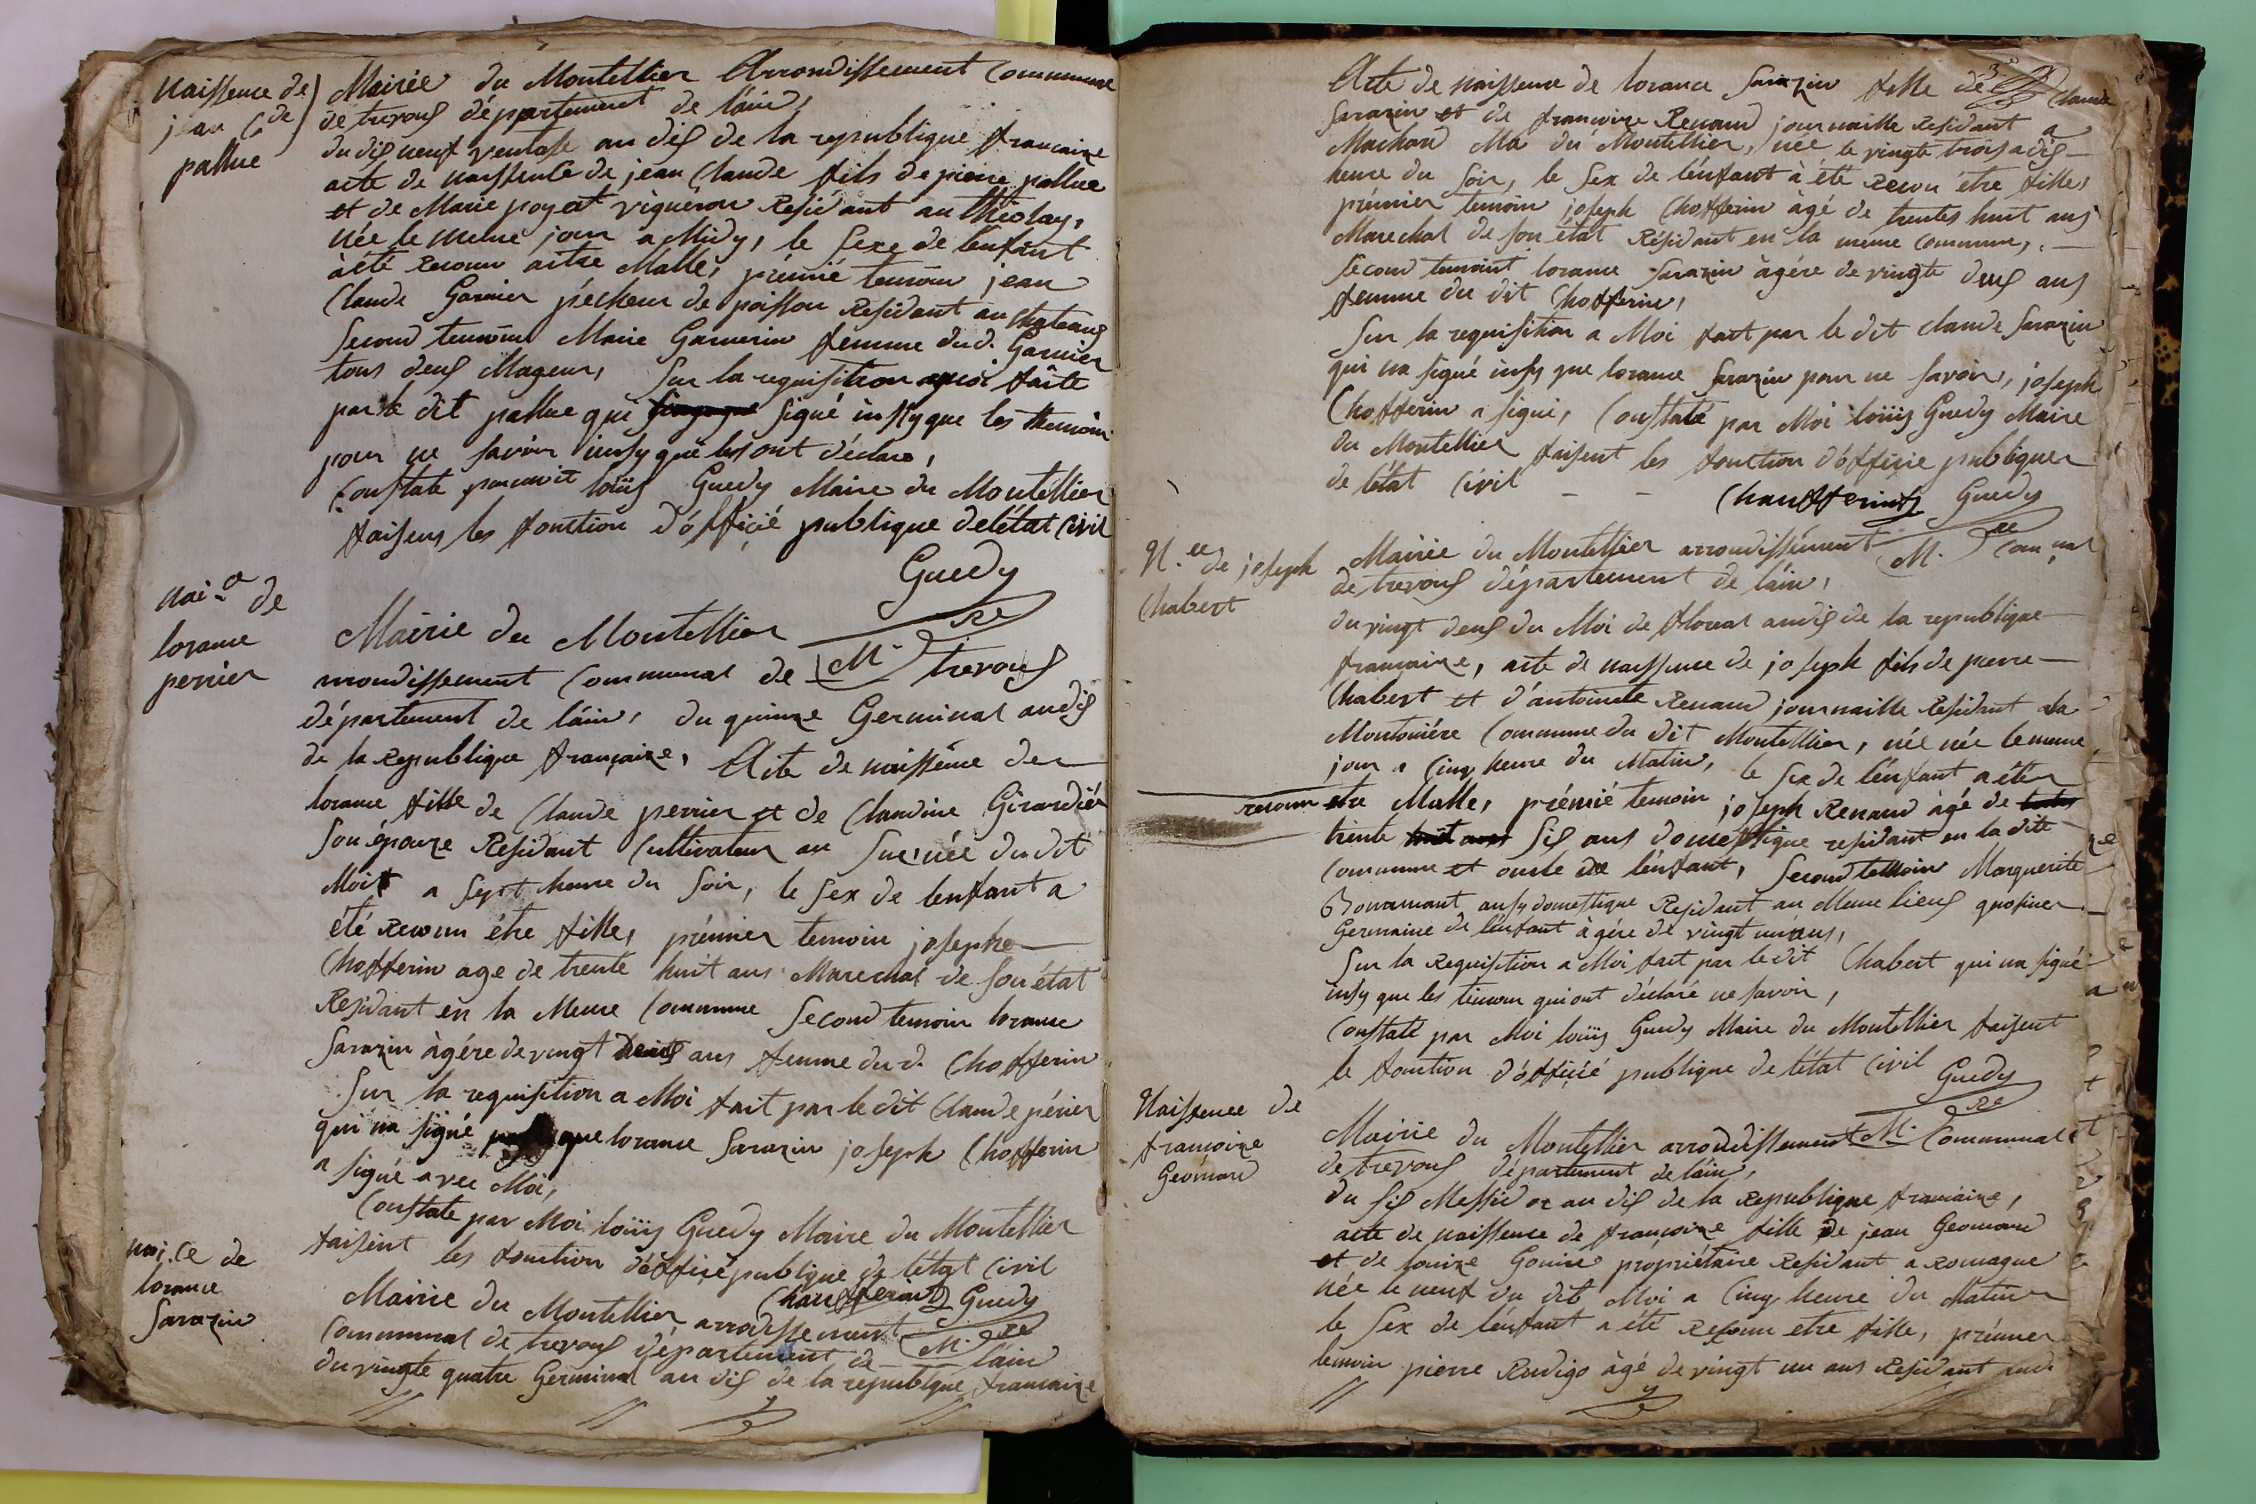 Naissence de
jean Cde
pallue
Mairie du Montellier Arrondissement Communal
de trevous département de l'ain,
du dis neuf ventose an dis de la republique francaize
acte de naissence de jean Claude fils de pierre pallue
et de Marie poyat vigneron Residant au
née le meme jour a Midy, le sexe de l'enfant
à été Reconu aître Malle, prémié temoin jean
Claude Garnier pécheur de poisson Residant au chateaus
second temoins Marie Garnerin femme dud. Garnier
tous deus Mageur, Sur la requisition a moi faite
par le dit pallue qui signé insy que les themoin
pour ne savoir insy que les ont déclaré,
Constate par moi loüis Guedy Maire du Montellier
faisens les fonction d'officié publique de l'état Civil
Guedy
M.re
nai.ce de
lorance
perrier
Mairie du Montellier
arrondissement Communal de trevous
département de l'ain, du quinze Germinal an dis
de la Republique française, Acte de naissence de
lorance fille de Claude perrier et de Claudine Girardiér
son épouze Residant Cultivateur au née du dit
Mois a sept heure du soir, le sex de lenfant a
été Reconu être fille, prémier temoin josephe
Chofferin age de trente huit ans Marechal de son état
Residant en la Meme Commune second temoin lorance
Sarazin àgére de vingt deus ans femme du d. Chofferin
Sur la requisition a Moi fait par le dit Claude périer
qui na signé que lorance Sarazin joseph Chofferin
a signé avec Moi,
Constate par Moi loüis Guedy Maire du Montellier
faisent les fonction d'officié publique de l'état Civil
Guedy
M.re
nai.ce de
lorance
Sarazin
Mairie du Montellier arrondissement
Communal de trevous département de l'ain
du vingte quatre Germinal an dis de la republque francaize
Acte de naissence de lorance Sarazin fille de Claude
Sarazin et de francoize Renaud journaille Residant a
Machard Mà du Montellier, née le vingte trois a dis
heure du soir, le sex de l'enfant à été Reconu être fille,
prémier temoin joseph Chofferin àgé de trentes huit ans
Marechal de son état Résidant en la meme Commune,
second temoint lorance Sarazin àgére de vingte deus ans
femme du dit Chofferin,
Sur la requisition a Moi fait par le dit claude Sarazin
qui na signé insy que lorance Sarazin pour ne savoir, joseph
Chofferin a signé, Constaté par Moi loüis Guedy Maire
du Montellier faisent les fonction d'officié publiquer
de l'état Civil
Guedy
M.re
N.ce de joseph
Chabert
Mairie du Montellier arrondissément Communal
de trevous département de l'ain,
du vingt deus du Moi de floreal an dis de la republique
francaize, acte de naissence de joseph fils de pierre
Chabert et d'antoinete Renaud journaille Residant ala
Montoniére Commune du dit Montellier, née née le meme
jour a Cinq heure du Matin, le sex de l'énfant a été
reconu etre Malle, prémié temoin joseph Renaud àgé de
trente sis ans domestique residant en la dite
Commune et oncle de l'énfant, second temoin Marguerite
ausy domestique Residant au Meme lieus
Germaine de l'énfant àgére de vingt un ans,
Sur la Requisition a Moi fait par le dit Chabert qui na signé
insy que les temoin qui ont déclaré ne savoir,
Constaté par Moi loüis Guedy Maire du Montellier faisent
le fonction d'officié publique de l'état Civil
Guedy
M.re
Naissence de
francoize
Geomard
Mairie du Montellier arrondissement Communal
de trevous département de l'ain,
du sis Messidor an dis de la Republique francaize,
acte de naissence de francoize fille de jean Geomard
et de louize propriétaire Residant a Romagne
née le neuf du dit Moi a Cinq heure du Matin
le sex de l'énfant a été Reconu etre fille, prémier
temoin pierre àgé de vingt un ans Residant